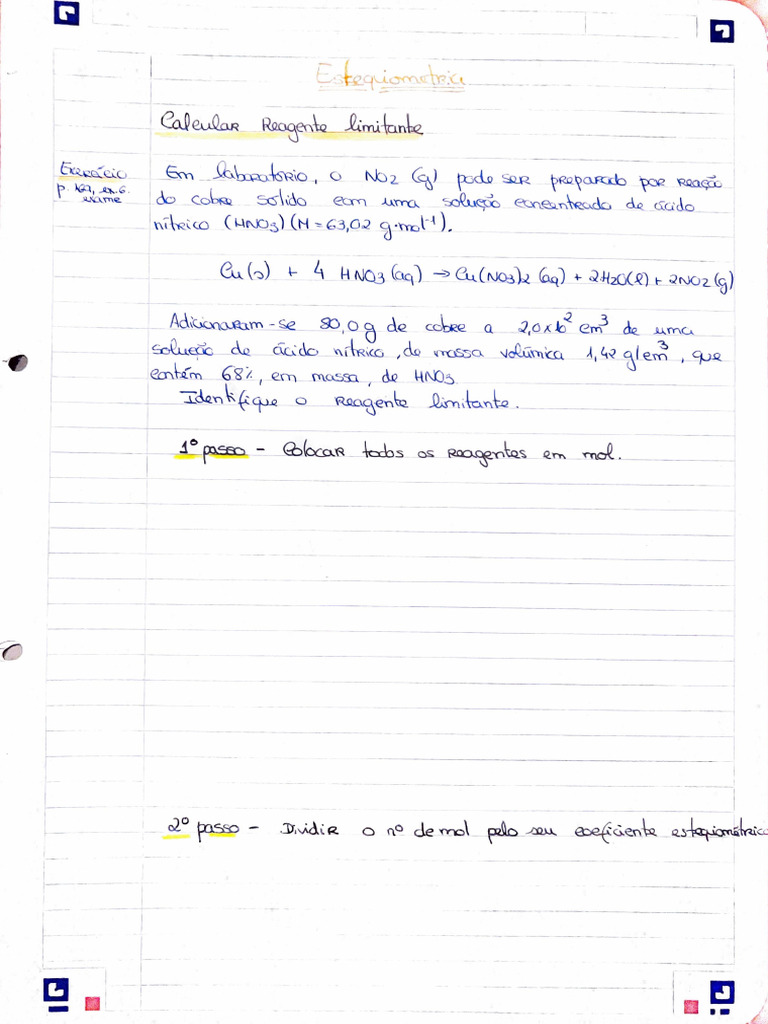 Estequiometria
Calcular Reagente limitante
Exercício
p. 167, ex. 6.
exame
Em laboratório, o NO2 (g) pode ser preparado por reação
do cobre sólido com uma solução concentrada de ácido
nítrico (HNO3) (M = 63,02 g·mol⁻¹).
Cu(s) + 4 HNO3(aq) → Cu(NO3)2 (aq) + 2H2O(l) + 2NO2(g)
Adicionaram-se 80,0g de cobre a 2,0x10² cm³ de uma
solução de ácido nítrico, de massa volúmica 1,42 g/cm³, que
contém 68%, em massa, de HNO3.
Identifique o reagente limitante.
1º passo - Colocar todos os reagentes em mol.
2º passo - Dividir o nº de mol pelo seu coeficiente estequiométrico